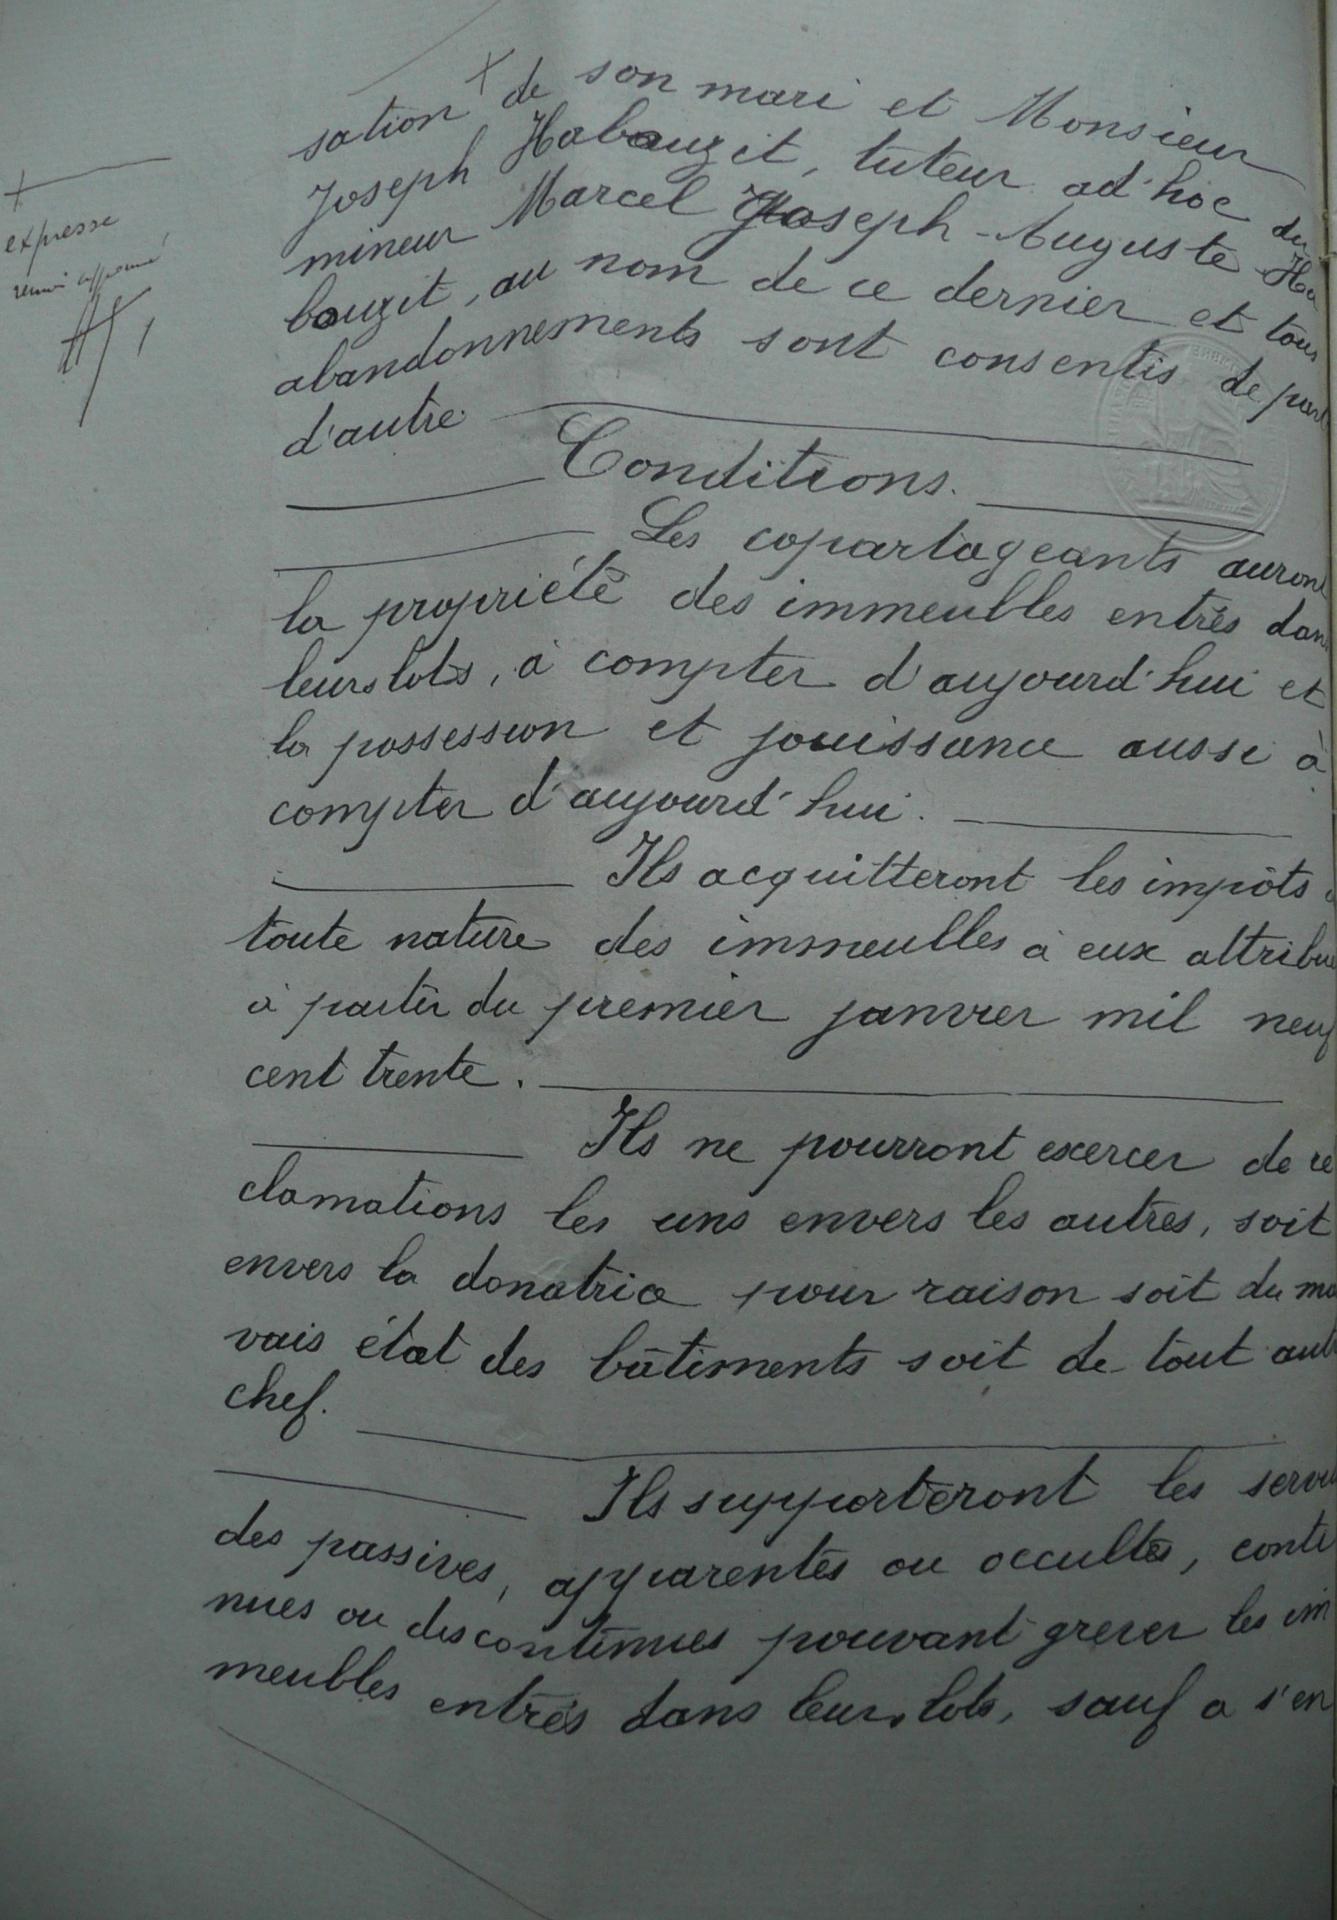 sation + de son mari et Monsieur
Joseph Habauzit, tuteur ad'hoc du
mineur Marcel Joseph-Auguste Ha
bauzit, au nom de ce dernier et tous
abandonnements sont consentis de part
d'autre
+
expresse
renvoi approuvé
Conditions.
Les copartageants auront
la propriété des immeubles entrés dans
leurs lots, à compter d'aujourd'hui et
la possession et jouissance aussi à
compter d'aujourd'hui.
Ils acquitteront les impôts
toute nature des immeubles à eux attribu
à partir du premier janvier mil neuf
cent trente.
Ils ne pourront exercer de ré
clamations les uns envers les autres, soit
envers la donatrice pour raison soit du mau
vais état des bâtiments soit de tout aut
chef.
Ils supporteront les servi
des passives, apparentes ou occultes, conti
nues ou discontinues pouvant grever les im
meubles entrés dans leurs lots, sauf a s'en